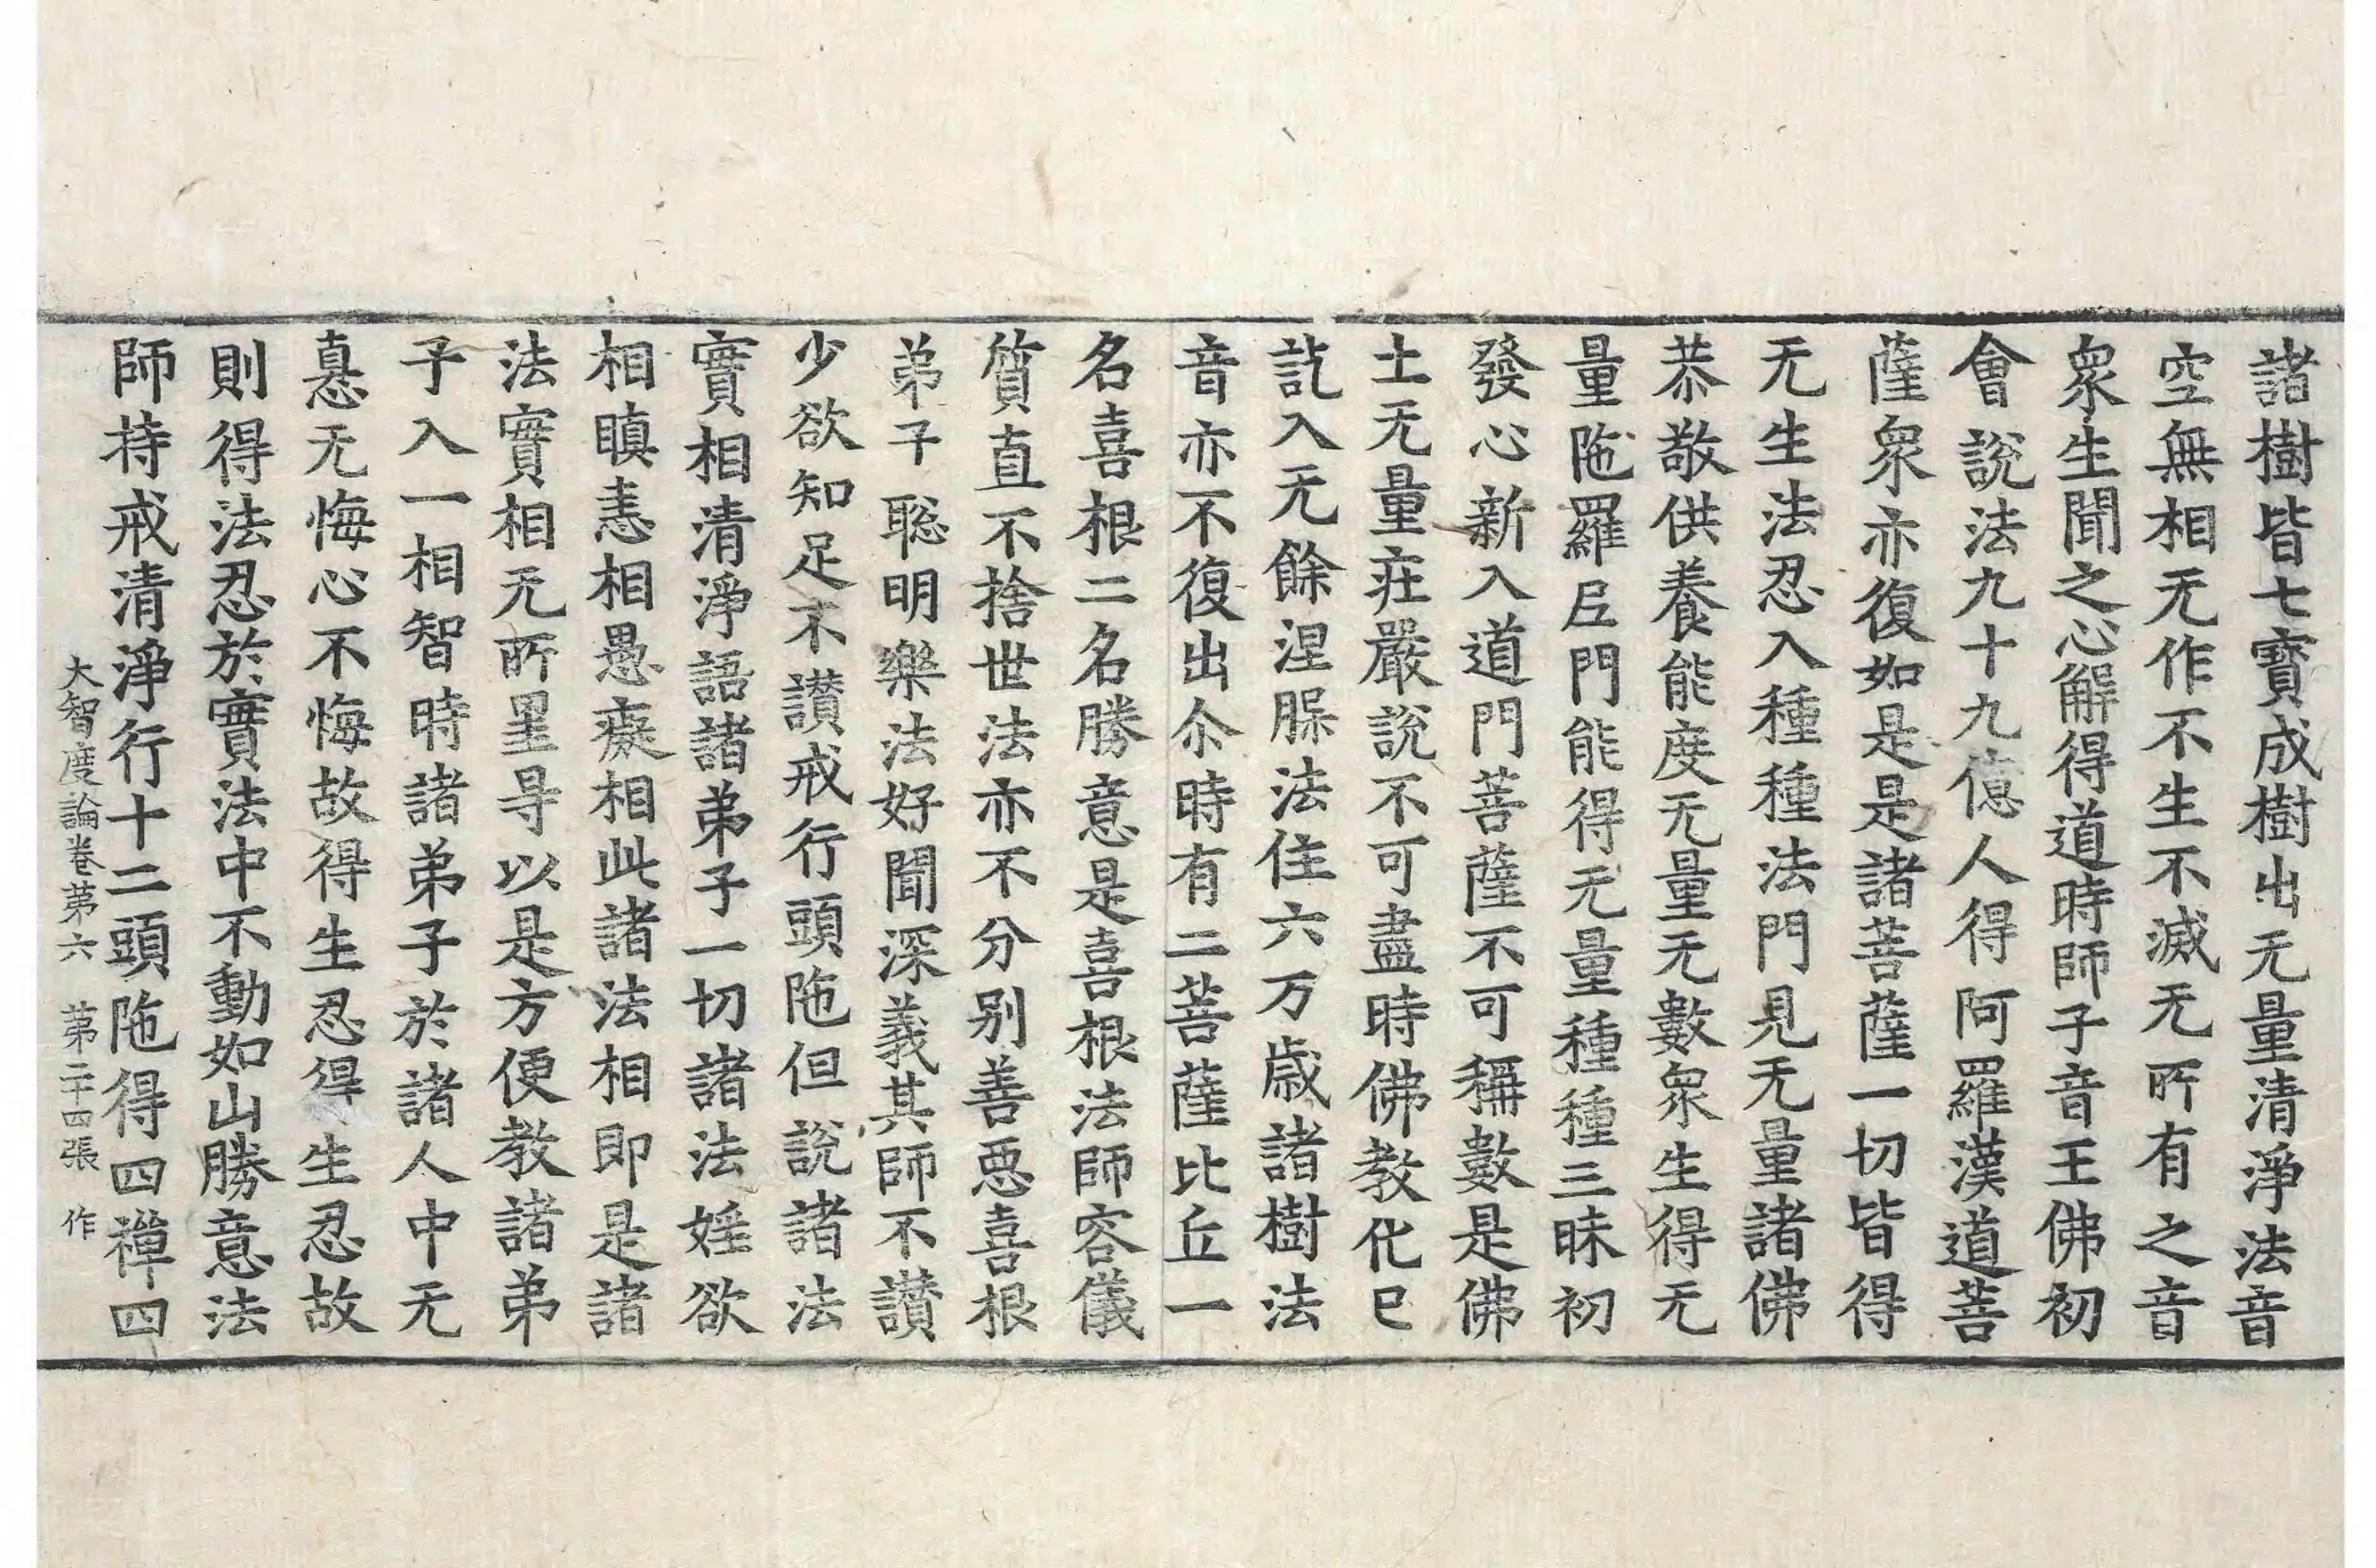 諸樹皆七寶成樹出无量清淨法音
空無相无作不生不滅无所有之音
衆生聞之心解得道時師子音王佛初
會說法九十九億人得阿羅漢道菩
薩衆亦復如是是諸菩薩一切皆得
无生法忍入種種法門見无量諸佛
恭敬供養能度无量无數衆生得无
量陁羅𡰱門能得无量種種三昧初
發心新入道門菩薩不可稱數是佛
土无量莊嚴說不可盡時佛教化已
訖入无餘涅槃法住六万歲諸樹法
音亦不復出尒時有二菩薩比丘一
名喜根二名勝意是喜根法師容儀
質直不捨世法亦不分別善惡喜根
弟子聡明樂法好聞深義其師不讃
少欲知足不讃戒行頭陁但說諸法
實相清淨語諸弟子一切諸法婬欲
相瞋恚相愚癡相此諸法相即是諸
法實相无所罣㝵以是方便教諸弟
子入一相智時諸弟子於諸人中无
恚无悔心不悔故得生忍得生忍故
則得法忍於實法中不動如山勝意法
師持戒清淨行十二頭陁得四禪四
大智度論卷第六 第二十四張 作